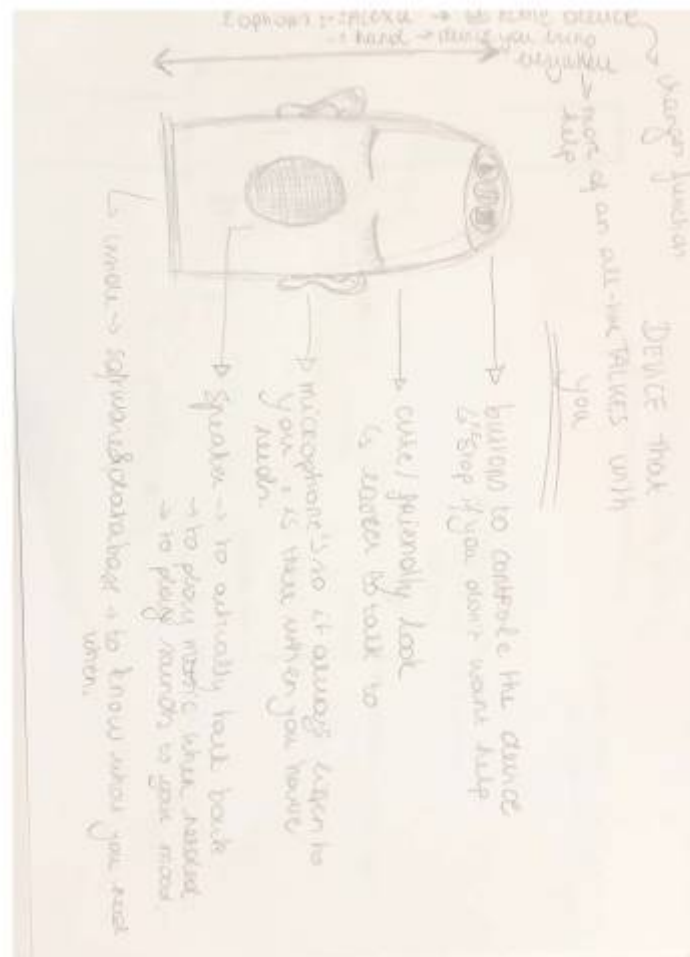 DEVICE that
TALKES with
you
charger function
→ more of an all-time
help
2 options: :Alexa → at home device
: hand → device you bring
everywhere
→ buttons to controle the device
↳ stop if you don't want help
→ cute/friendly look
is easier to talk to
→ microphone's so it always listen to
you & is there when you have
needs
→ speaker → to actually talk back
→ to play music when needed
→ to play sounds to you mood
↳ inside → software & database → to know what you need
when.